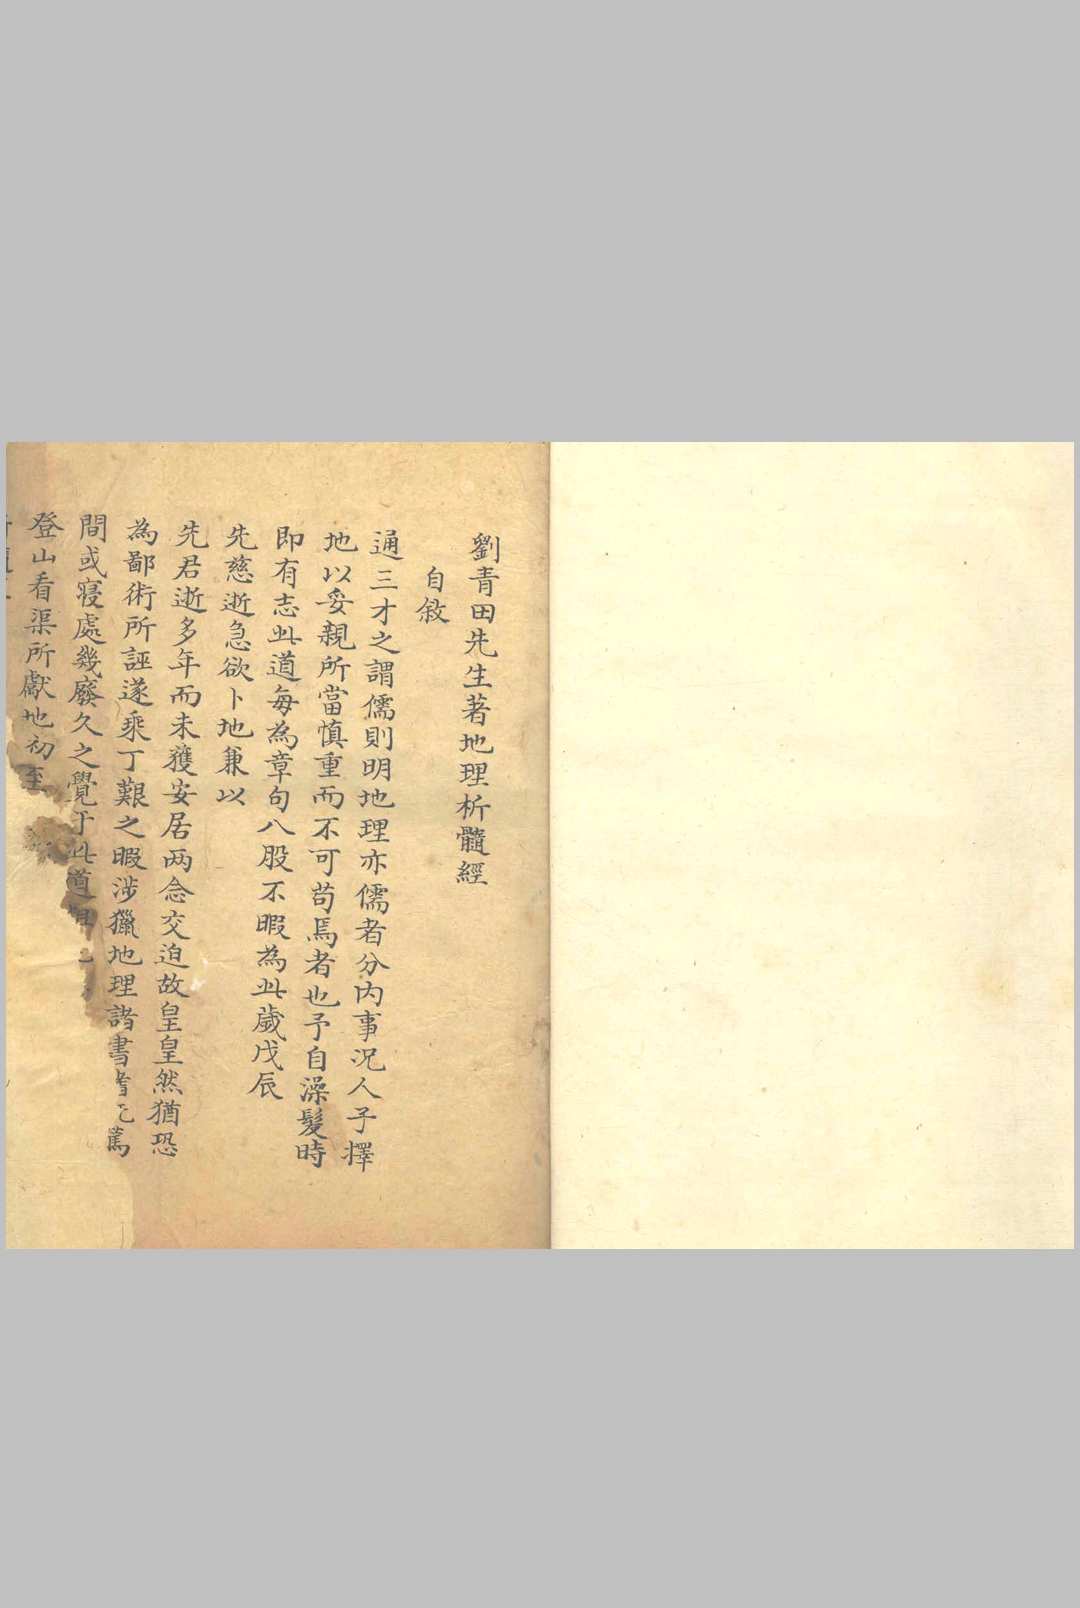 劉青田先生著地理析髓經
自敘
通三才之謂儒則明地理亦儒者分内事況人子擇
地以妥親所當慎重而不可苟焉者也予自澡髮時
即有志此道每為章句八股不暇為此歲戊辰
先慈逝急欲卜地兼以
先君逝多年而未獲安居两念交迫故皇皇然猶恐
為鄙術所誣遂乘丁艱之暇涉獵地理諸書篤
間或寝處幾廢久之覺于此道
登山看渠所獻地初至